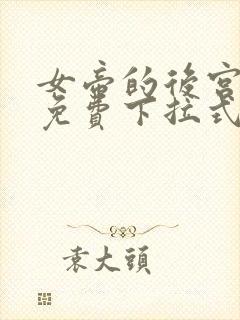 女帝的後宮
免費下拉式
袁大頭